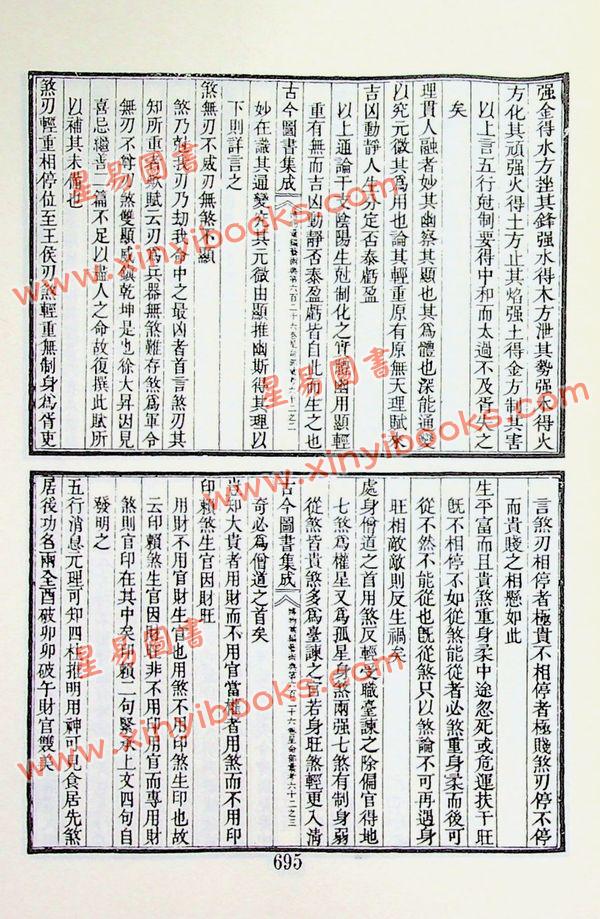 强金得水方挫其鋒强水得木方泄其勢强木得火
方化其頑强火得土方止其焰强土得金方制其害
以上言五行尅制要得中和而太過不及胥失之
矣
理貫人融者妙其幽察其顯也其為體也深能通變
以究元微其為用也論其輕重原有原無天理賦來
吉凶動靜人分定否泰虧盈
以上通論干支陰陽生尅制化之體用顯輕
重有無而吉凶動靜否泰盈虧皆自此而生之也
古今圖書集成
妙在識其通變究其元微由顯推幽斯得其理以
下則詳言之
煞無刃不威刃無煞不顯
煞乃尅我刃乃劫我命中之最凶者首言煞刃其
知所重者歌賦云刃為兵器無煞難存煞為軍令
無刃不尊刃煞雙顯威鎮乾坤是也徐大昇因見
喜忌繼善二篇不足以盡人之命故復撰此賦所
以補其未備也
煞刃輕重相停位至王侯刃煞輕重無制身為胥吏
言煞刃相停者極貴不相停者極賤煞刃停不停
而貴賤之相懸如此
生平富而且貴煞重身柔中途忽死或危運扶干旺
旣不相停不如從煞能從者必煞重身柔而後可
從不然不能從也旣從煞只以煞論不可再遇身
旺相敵敵則反生禍矣
處身僧道之首用煞反輕受職臺諫之除偏官得地
七煞為權星又為孤星身煞兩强七煞有制身弱
從煞皆貴煞多為臺諫之官若身旺煞輕更入清
奇必為僧道之首矣
古今圖書集成
尚知大貴者用財而不用官當權者用煞而不用印
印賴煞生官因財旺
用財不用官財生官也用煞不用印煞生印也故
云印賴煞生官因財旺非不用印用官而專用財
煞則官印在其中矣印賴二句緊承上文四句自
發明之
五行消息元理可知四柱推明用神可見食居先煞
居後功名兩全酉破卯卯破午財官雙美
695
星易圖書
www.xinyibooks.com
星易圖書
www.xinyibooks.com
星易圖書
www.xinyibooks.com